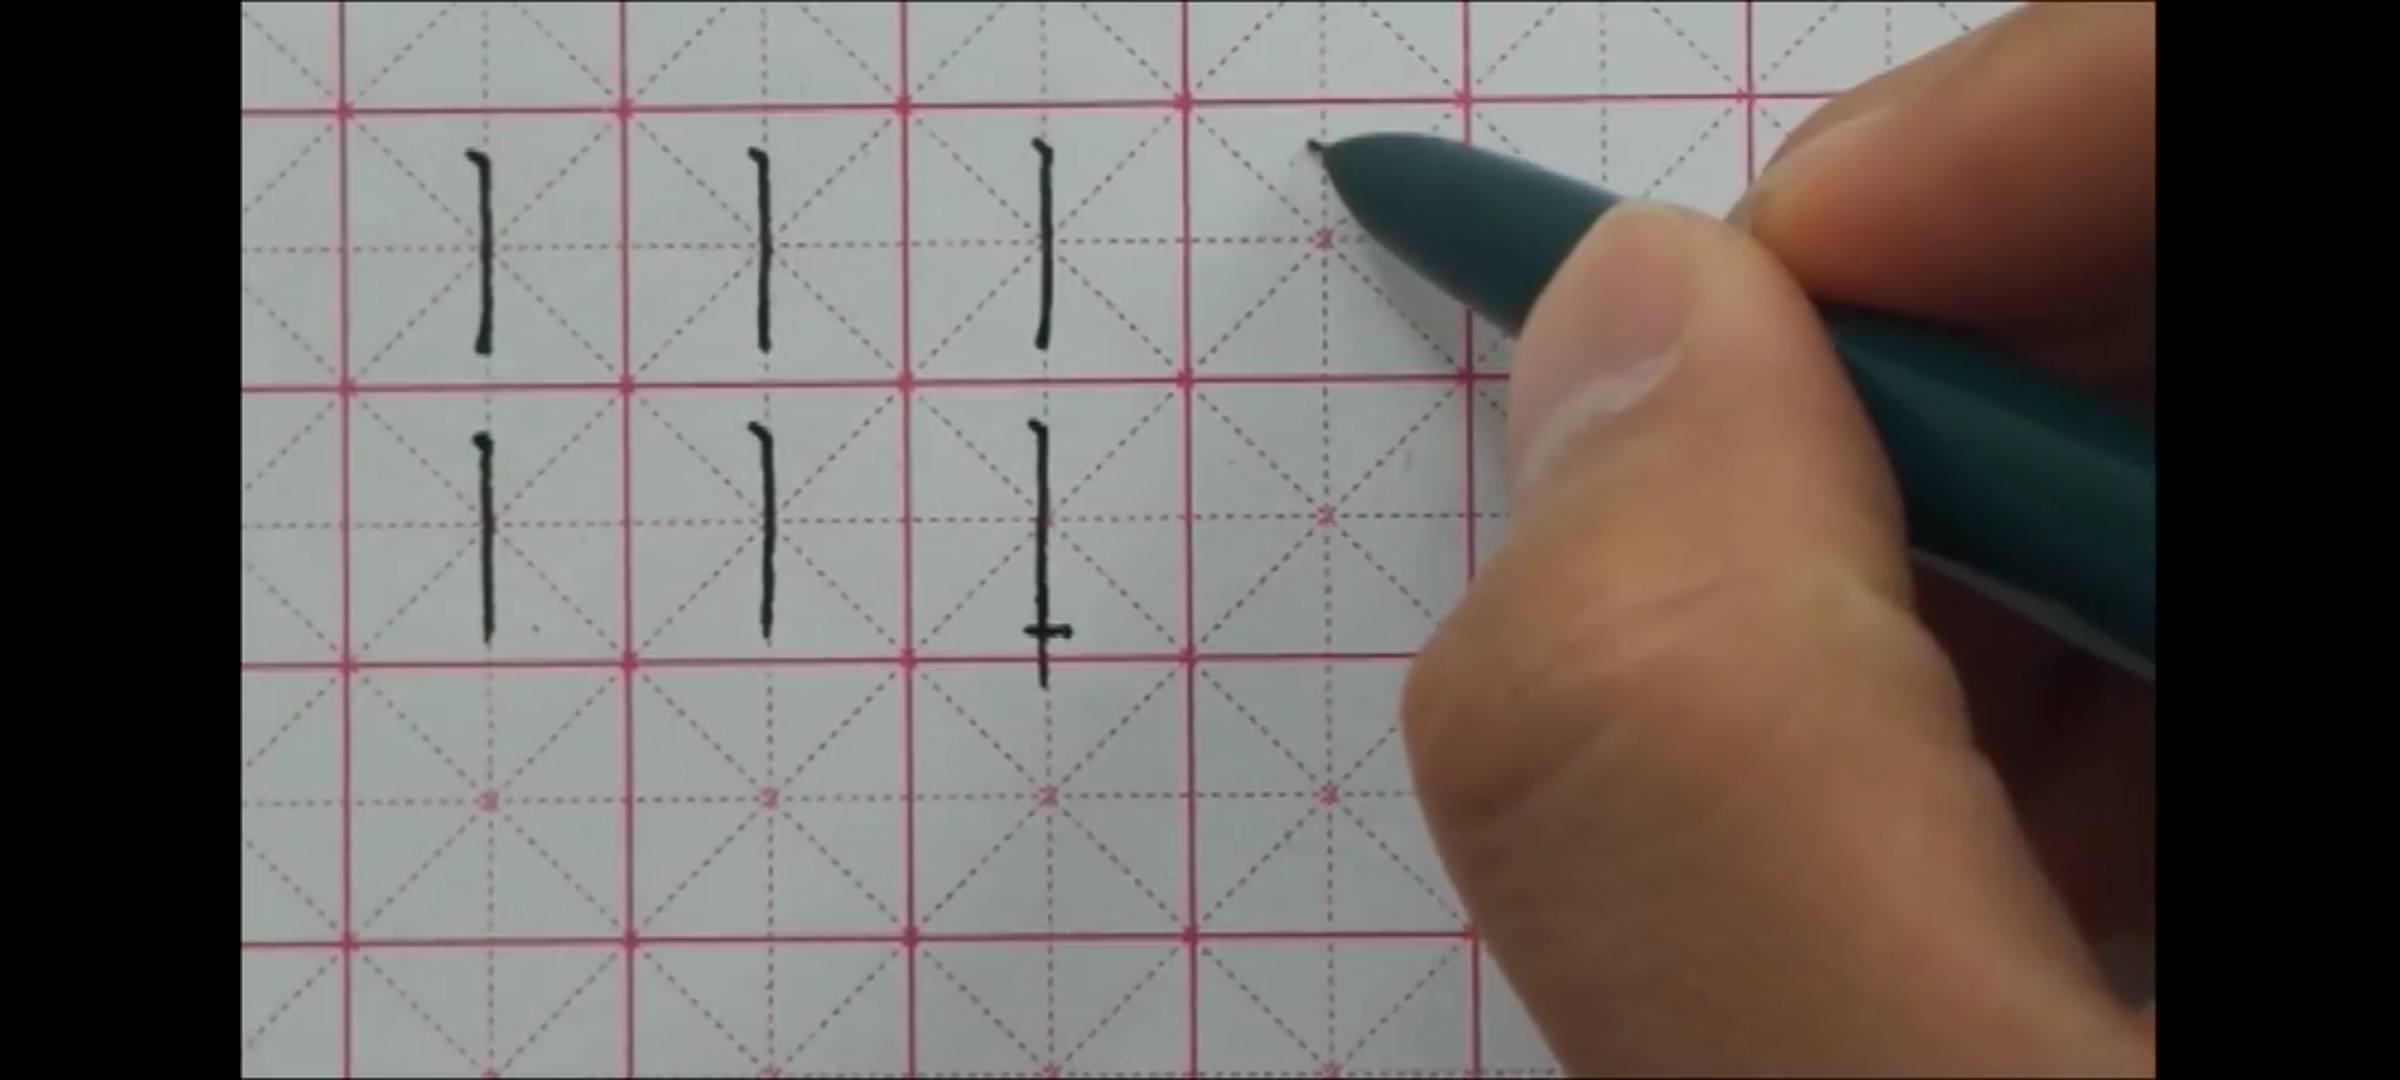 丨 丨 丨
丨 丨